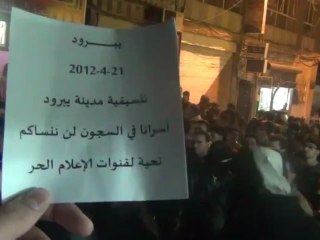 يبرود
2012-4-21
تنسيقية مدينة يبرود
أسرانا في السجون لن ننساكم
تحية لقنوات الإعلام الحر